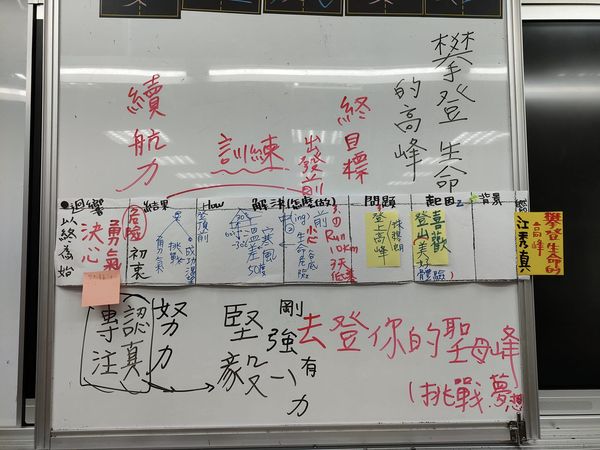 攀登生命
的高峰
終目標
出發前
訓練
續航力
攀登生命的
高峰
江秀真
背景
起因
喜歡
登山美好
體驗
問題
登上高峰
珠穆朗瑪
解決(怎麼做的)
前
Run
10km
3天
低
小心
生命危險
寒風
溫差
50度
How
登頂前
結果
成功
挑戰
勇氣
危險
初衷
迴響
以終為始
勇氣
決心
努力
認真
專注
堅毅
剛強
有力
去登你的聖母峰
(挑戰夢想